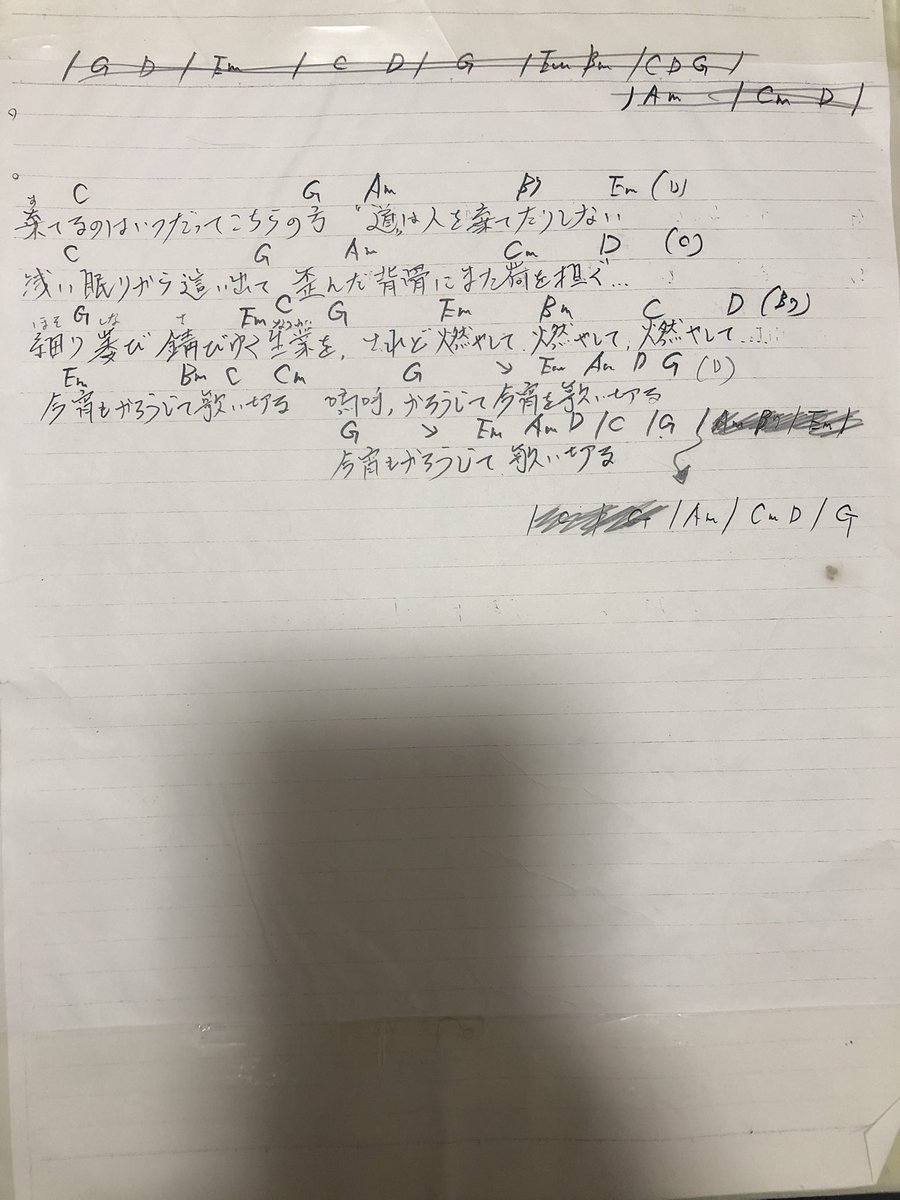 / G D / Em / C D / G / Em Bm / C D G /
/ Am / Cm D /
C G Am B7 Em (D)
す
棄てるのはいつだってこちらの方 “道”は人を棄てたりしない
C G Am Cm D (D)
浅い眠りから這い出て 歪んだ背骨にまた荷を担ぐ…
G Em C G Em Bm C D (B7)
ほそ しな さ
細り萎び 錆びゆく生業を, けれど燃やして, 燃やして, 燃やして……
Em Bm C Cm G Em Am D G (D)
今宵もかろうじて歌い切る 嗚呼, かろうじて今宵を歌い切る
G Em Am D / C / G / Am B7 / Em /
今宵もかろうじて 歌い切る
/ C / G / Am / Cm D / G